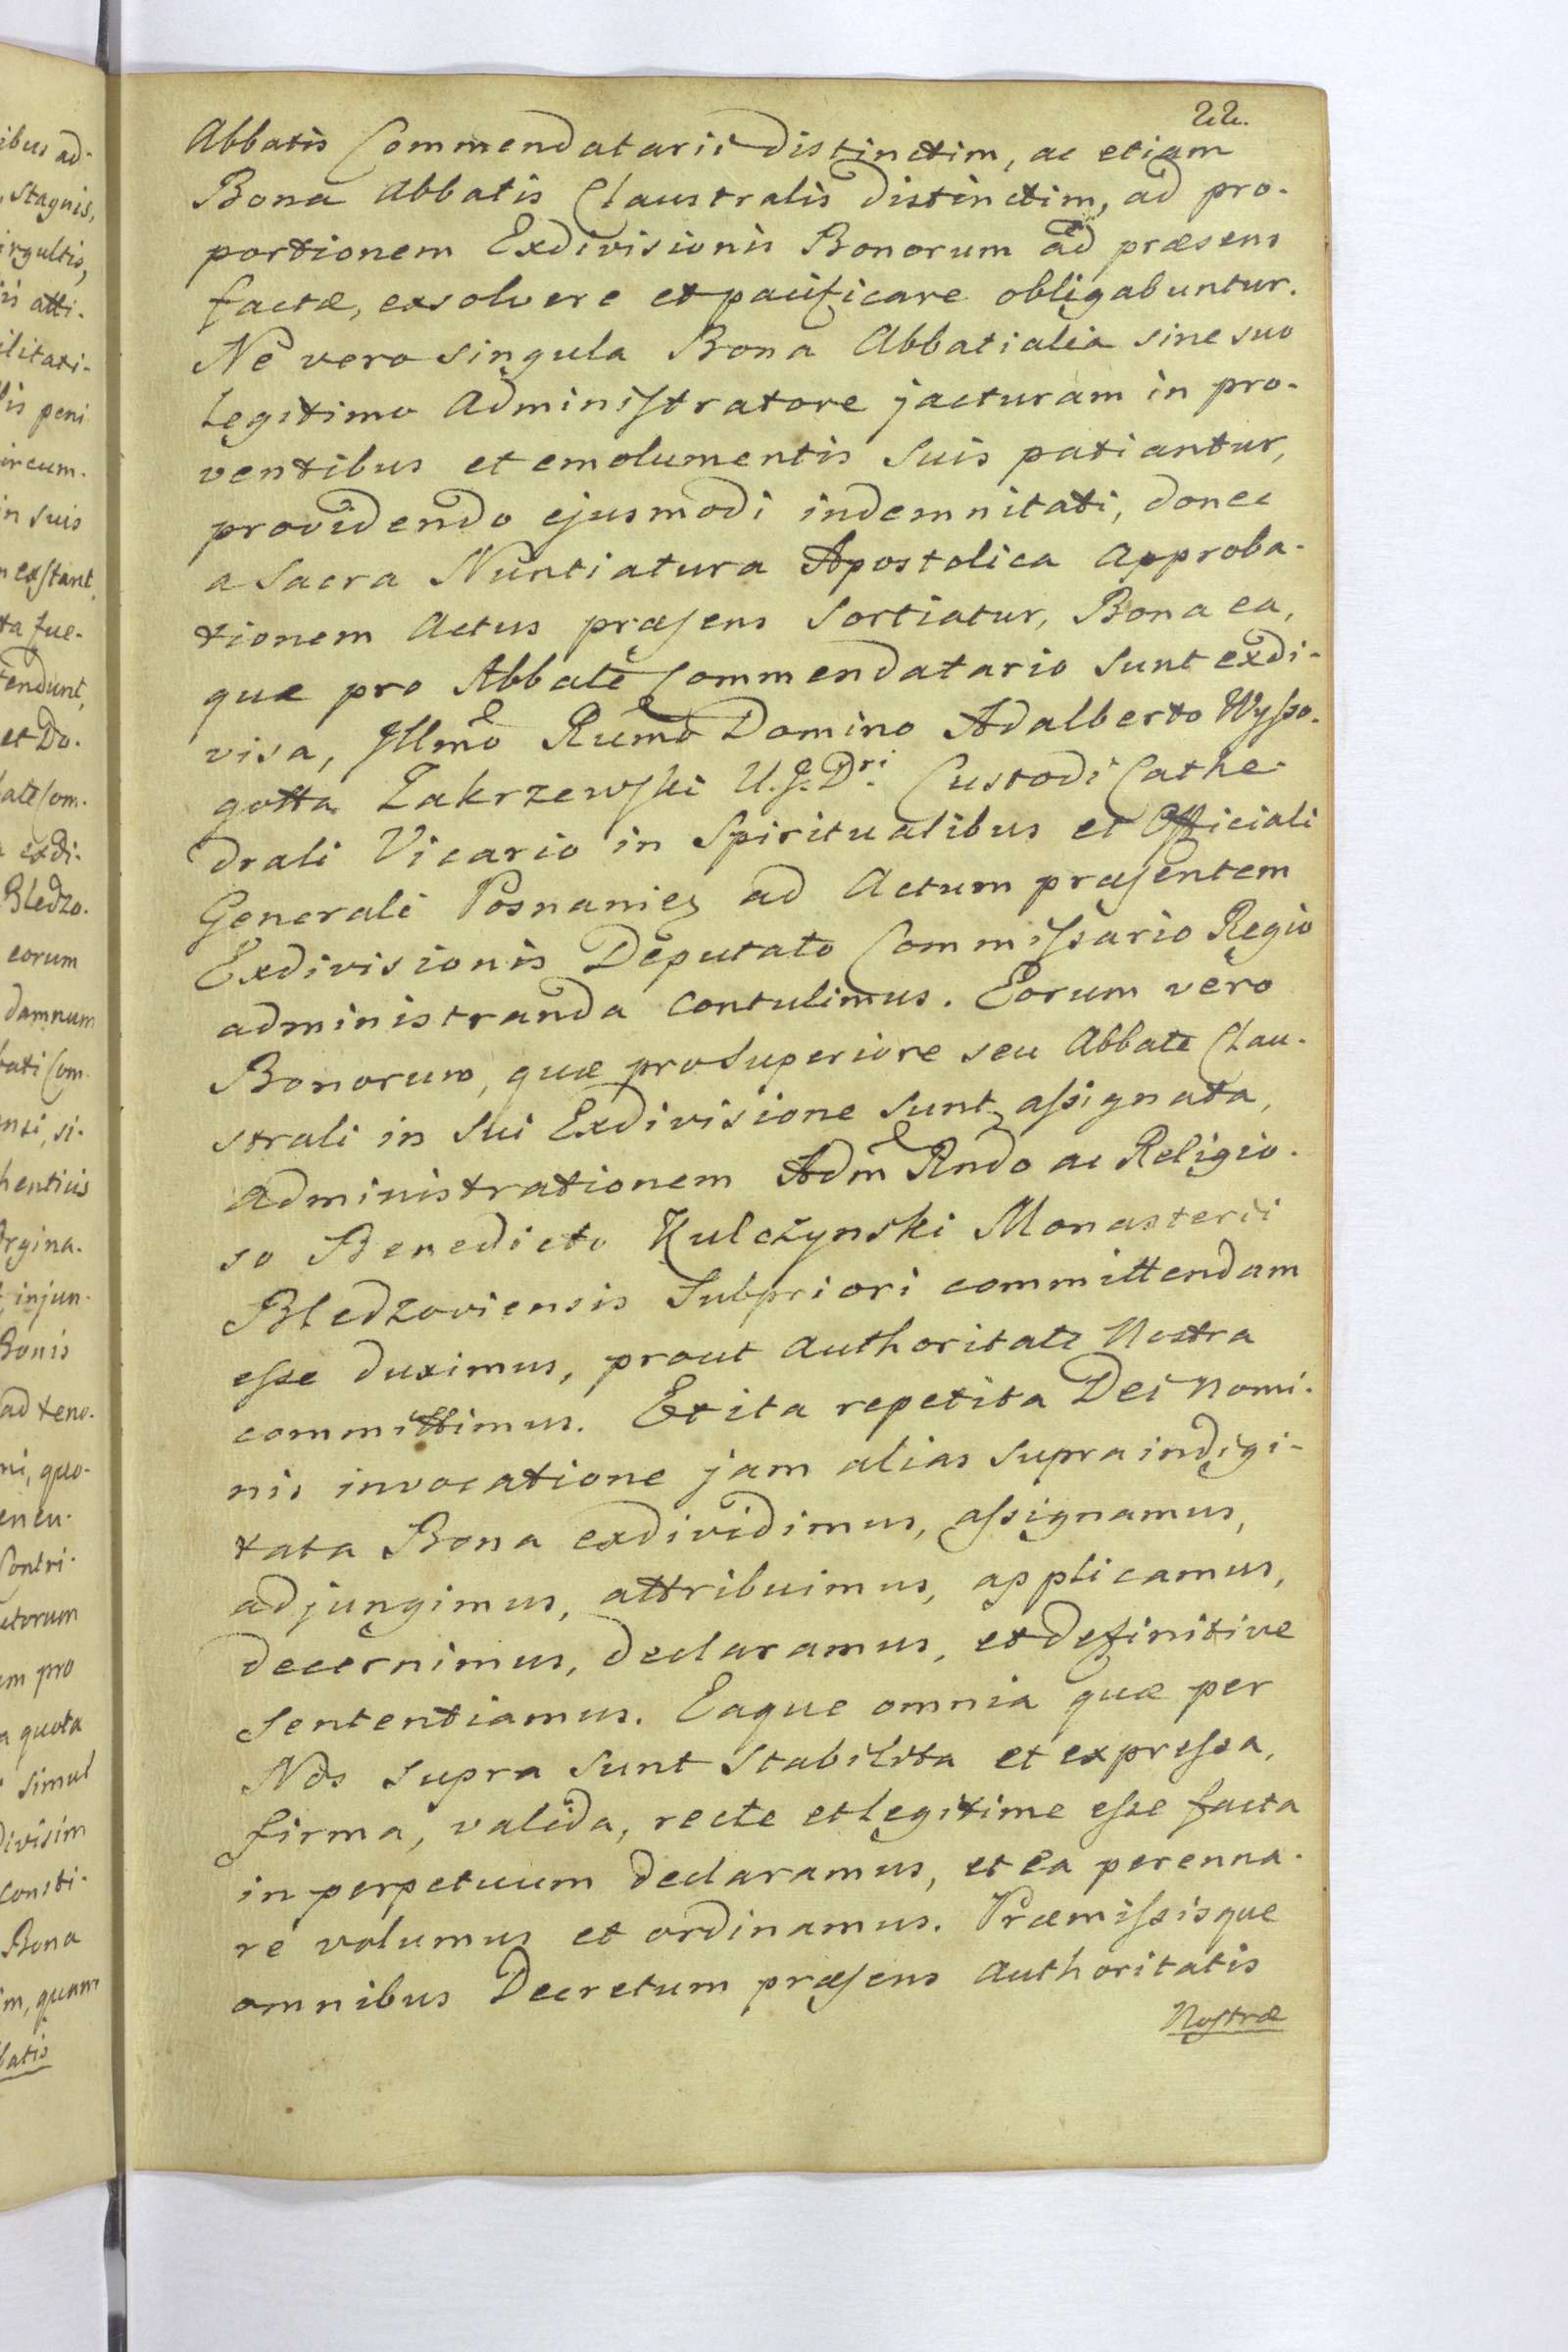 22.
Abbatis Commendatarii distinctim, ac etiam
Bona Abbatis Claustralis distinctim, ad pro-
portionem Exdivisionis Bonorum ad præsens
factæ, exsolvere et pacificare obligabuntur.
Ne vero singula Bona Abbatialia sine suo
legitimo Administratore jacturam in pro-
ventibus et emolumentis suis patiantur,
providendo ejusmodi indemnitati, donec
a Sacra Nuntiatura Apostolica Approba-
tionem Actus præsens sortiatur, Bona ea,
quæ pro Abbate Commendatario sunt exdi-
visa, Illmo Rumo Domino Adalberto Wysso-
gotta Zakrzewski U.J.Dri. Custodi Cathe-
drali Vicario in Spiritualibus et Officiali
Generali Posnaniez ad Actum præsentem
Exdivisionis Deputato Commissario Regio
administranda contulimus. Eorum vero
Bonorum, quæ pro Superiore seu Abbate Clau-
strali in sui Exdivisione sunt assignata,
administrationem Adm Rndo ac Religio-
so Benedicto Kulczynski Monasterii
Bledzoviensis Subpriori committendam
esse duximus, prout Authoritate Nostra
committimus. Et ita repetita Dei Nomi-
nis invocatione jam alias supra indigi-
tata Bona exdividimus, assignamus,
adjungimus, attribuimus, applicamus,
decernimus, declaramus, et definitive
sententiamus. Eaque omnia quæ per
Nos supra sunt stabilita et expressa,
firma, valida, recte et legitime esse facta
in perpetuum declaramus, et ea perenna-
re volumus et ordinamus. Præmissisque
omnibus Decretum præsens Authoritatis
Nostræ